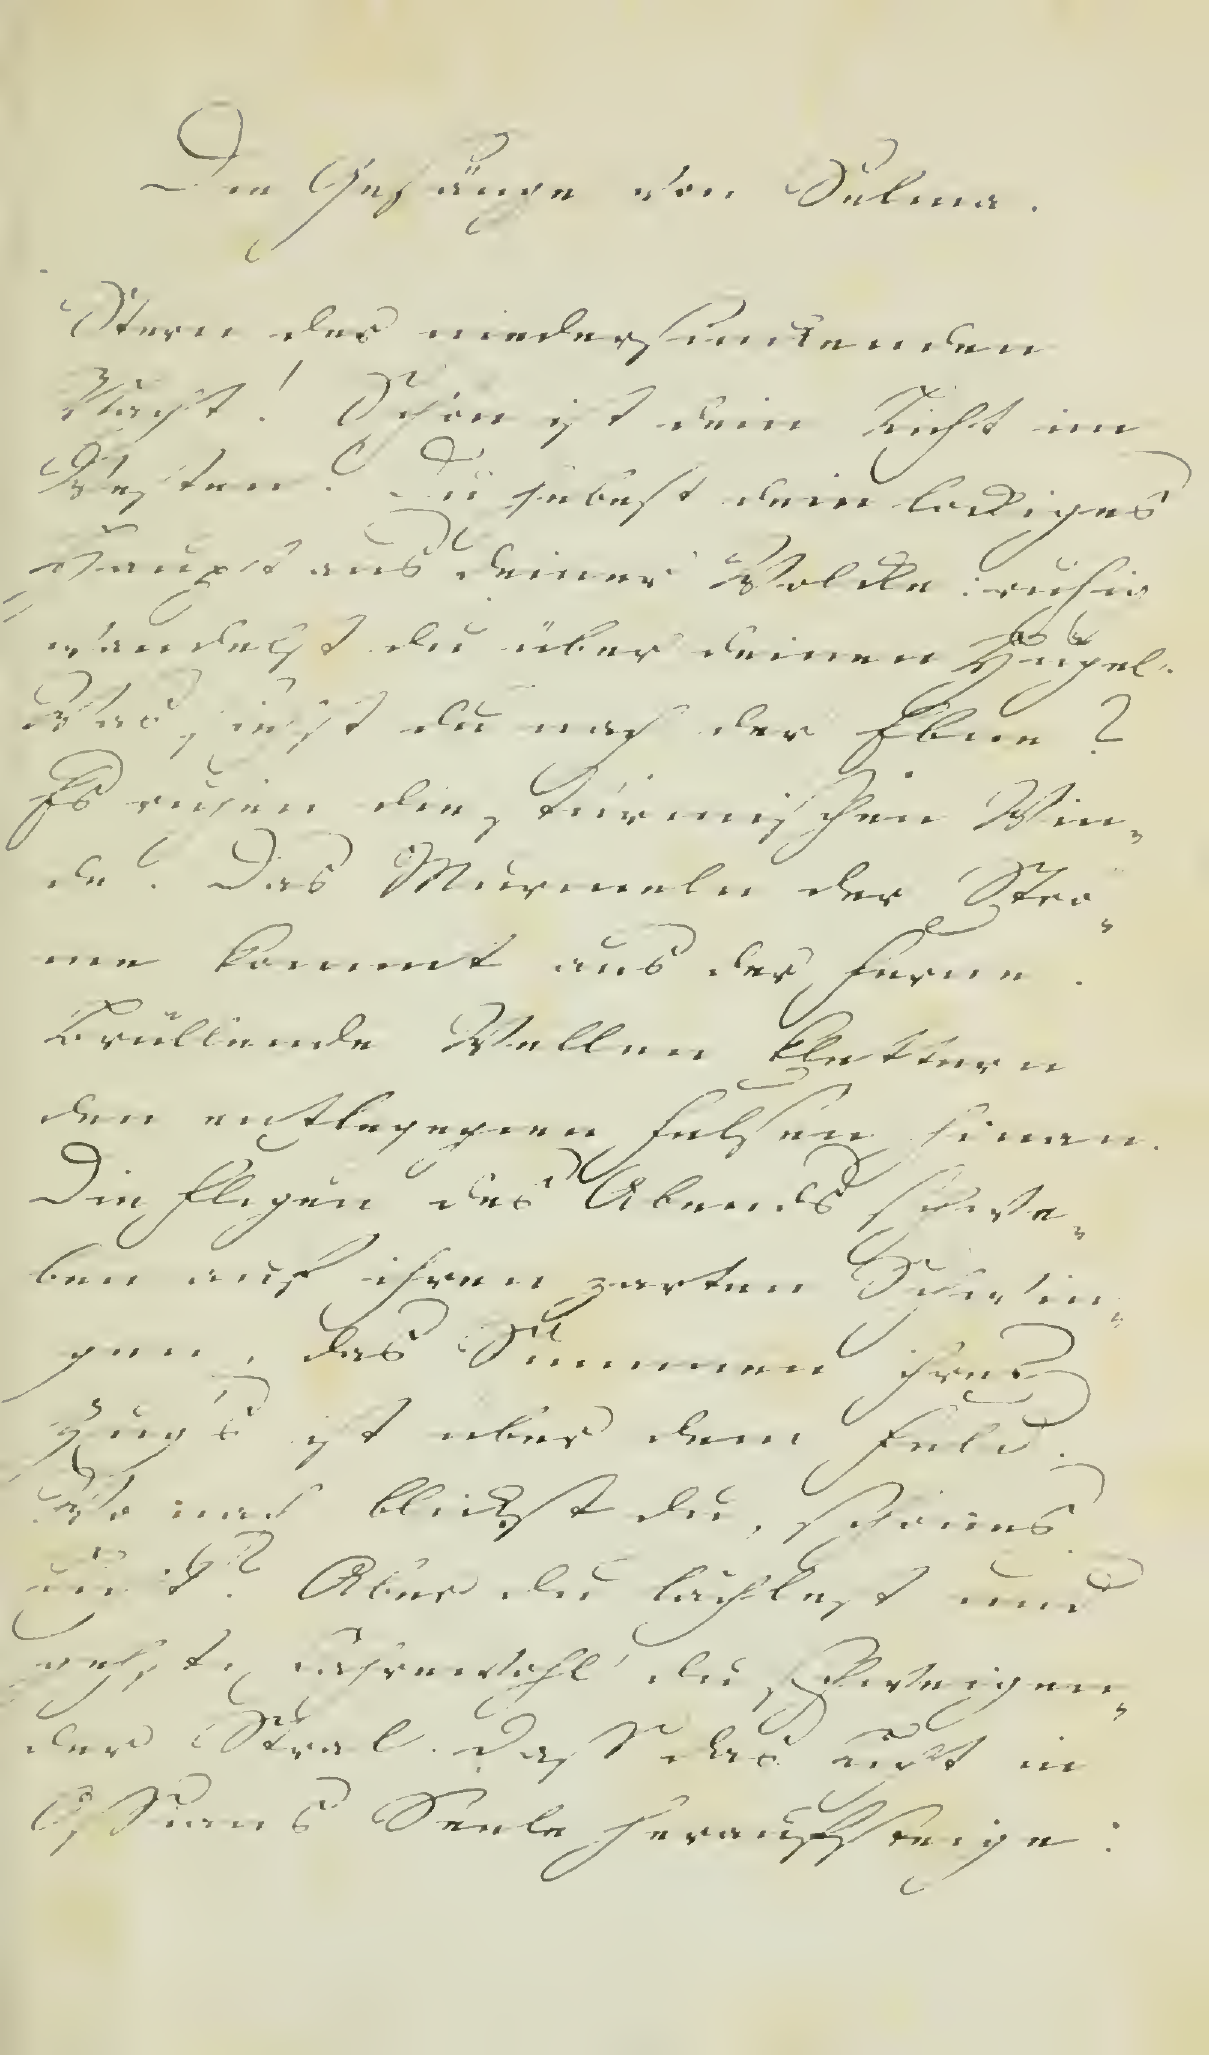 Die Gesänge von Selma.
Stern der niedersinckenden
Nacht! Schön ist dein Licht im
Westen! Du hebest dein lockiges
Haupt aus deiner Wolcke: ruhig
wandelst du über deinen Hügel.
Was siehst du nach der Ebne?
Es ruhen die stürmischen Win¬
de! Das Murmeln der Strö¬
me kommt aus der Ferne.
Brüllende Wellen klettern
den entlegenen Felsen hinan.
Die Flegen des Abends schwe¬
ben auf ihren zarten Schwin¬
gen, das Summen ihres
Zug's ist über dem Feld.
Wo nach blickst du, schönes
Licht? Aber du lächlest und
gehst. Fahrewohl du schweigen¬
der Stral. Dass das Licht in
Ossians Seele heraufsteige: